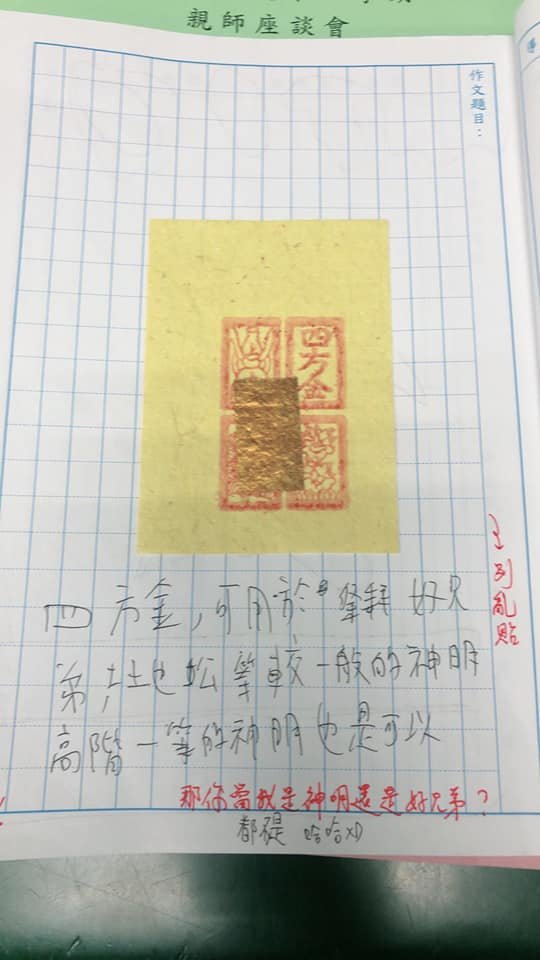 親師座談會
作文題目：
四方金
四方金，可用於 好兄
弟，土地 等較一般的神明
高階一等的神明也是可以
亂貼
那你當我是神明還是好兄弟？
都 哈哈XD